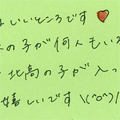 はいいところです♥
の子が何人もいる
北高の子が入っ
嬉しいです\(^o^)/